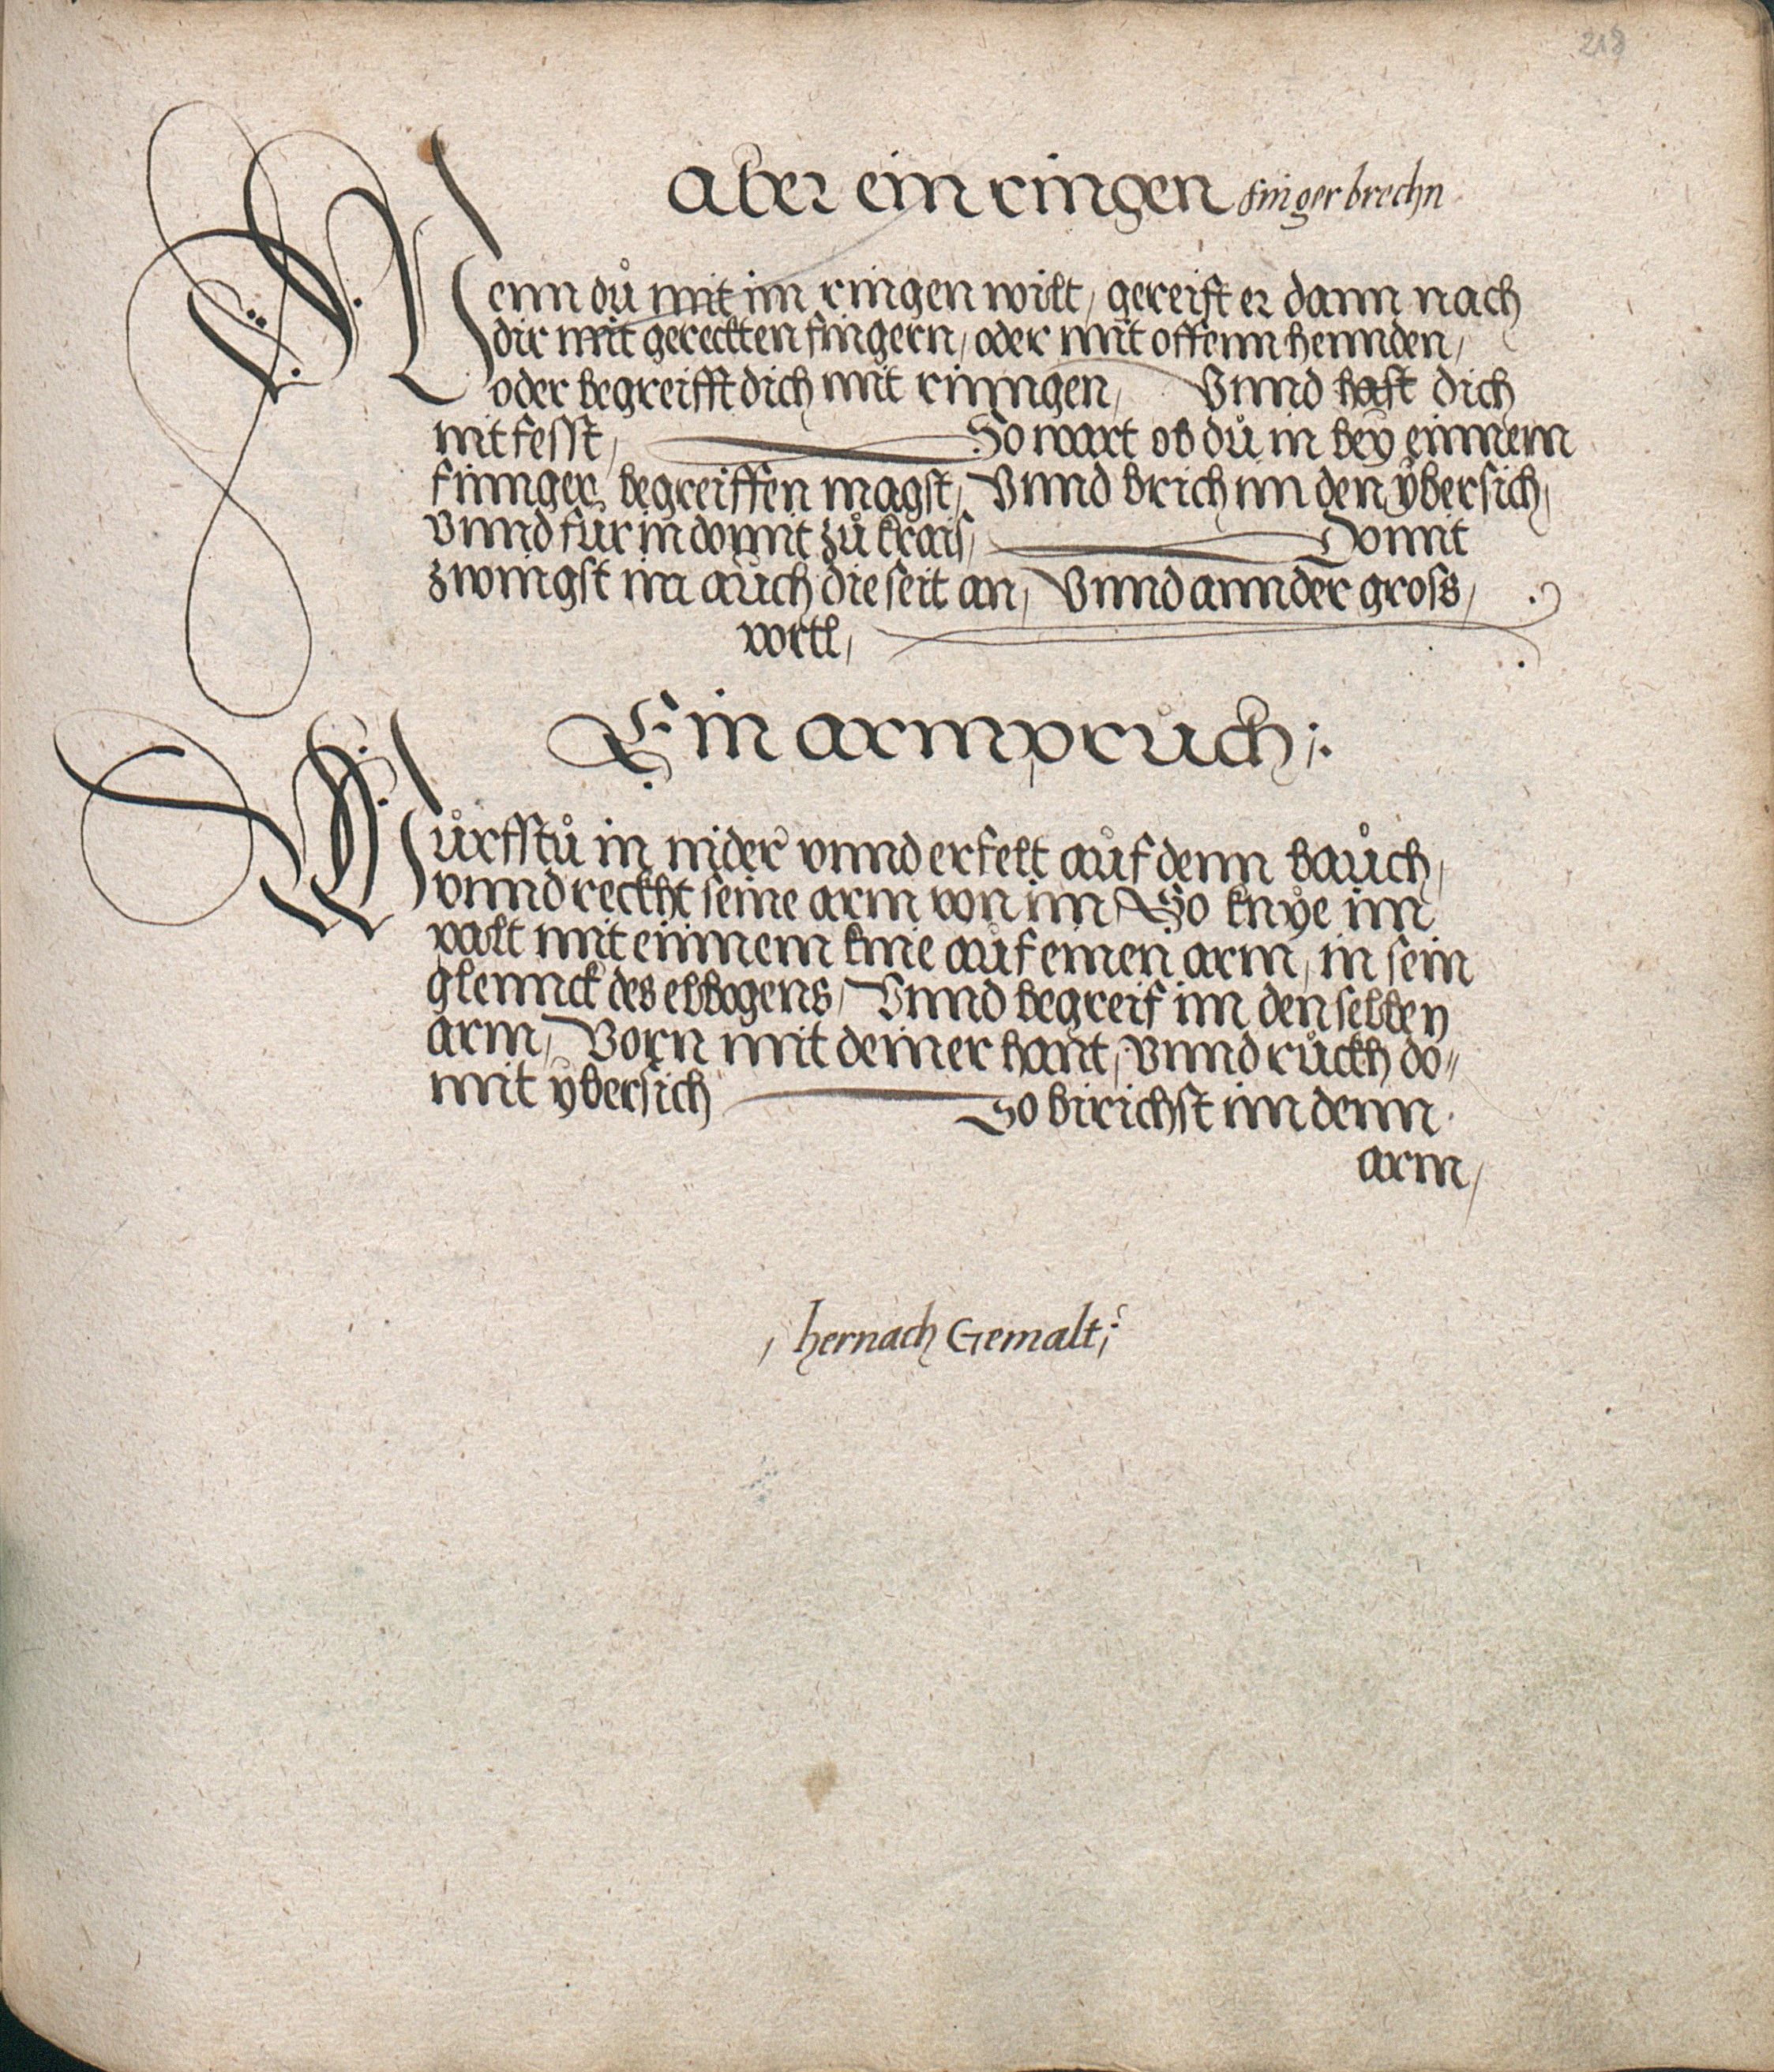 218
Aber ein ringen fingerbrechn
Wenn dů mit im ringen wilt, gereift er dann nach
dir mit gereckten fingern, oder mit offenn hennden,
oder begreifft dich mit rinngen, Vnnd hast dich
nit fesst, So wart ob dů in bey einnem
finnger begreiffen magst, Vnnd brich im den ybersich,
vnnd für in domit zů krais, Domit
zwingst im aůch die seit an, Vnnd annder gross,
vortl,
Ein armpruch
Wůrffstů in nider vnnd er felt aůf denn baůch,
vnnd reckht seine arm von im So knye im
palt mit einnem knie aůf einen arm, in sein
glennck des elbogens, Vnnd begreif im den selben
arm, Vorn mit deiner hant, Vnnd růckh do〃
mit ybersich So birichst im denn
arm,
, hernach Gemalt